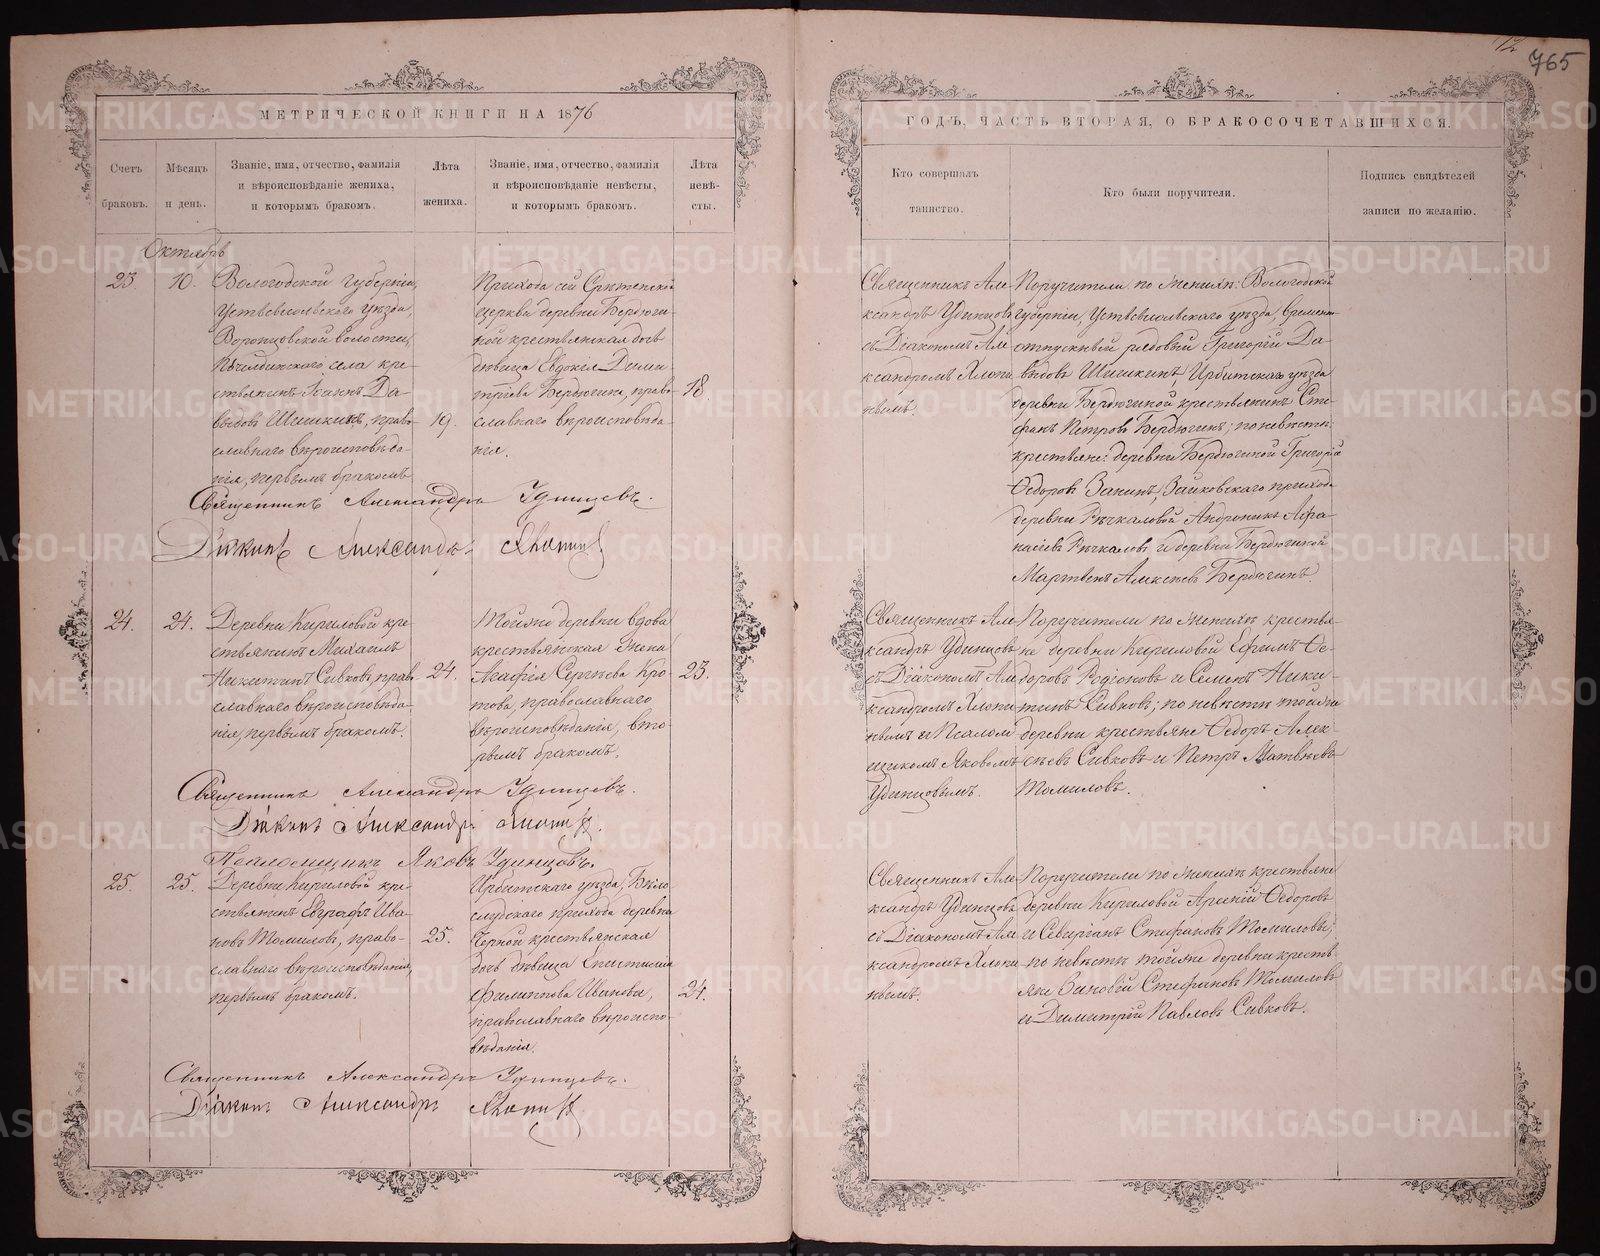 765
МЕТРИЧЕСКОЙ КНИГИ НА 1876
Счетъ браковъ.
Мѣсяцъ и день.
Званіе, имя, отчество, фамилія
и вѣроисповѣданіе жениха,
и которымъ бракомъ.
Лѣта жениха.
Званіе, имя, отчество, фамилія
и вѣроисповѣданіе невѣсты,
и которымъ бракомъ.
Лѣта
невѣ-
сты.
Октябрь
23.
10.
Вологодской губерніи,
Устьсысольскаго уѣзда,
Воронцовской волости,
села кре-
стьянинъ Іоаннъ Да-
выдовъ Шишкинъ, право-
славнаго вѣроисповѣда-
нія, первымъ бракомъ
19.
Прихода сей Срѣтенской
церкви деревни Бердюги-
ной крестьянская дочь
дѣвица Евдокія Дими-
тріева Бердюгина, право-
славнаго вѣроисповѣда-
нія.
18.
Священникъ Александръ Удинцевъ.
Діаконъ Александръ Хлопинъ
24.
24.
Деревни Кириловой кре-
стьянинъ Михаилъ
Никитинъ Сивковъ, право-
славнаго вѣроисповѣда-
нія, первымъ бракомъ.
24.
Тойже деревни вдова
крестьянская жена
Агафія Сергѣева Кро-
това, православнаго
вѣроисповѣданія, вто-
рымъ бракомъ.
23.
Священникъ Александръ Удинцевъ.
Діаконъ Александръ Хлопинъ.
Псаломщикъ Яковъ Удинцовъ.
25.
25.
Деревни Кириловой кре-
стьянинъ Евграфъ Ива-
новъ Томиловъ, право-
славнаго вѣроисповѣданія,
первымъ бракомъ.
25.
Ирбитскаго уѣзда, Бѣло-
слудскаго прихода деревни
Черной крестьянская
дочь дѣвица Епистимія
Филиппова Иванова,
православнаго вѣроиспо-
вѣданія.
24.
Священникъ Александръ Удинцевъ.
Діаконъ Александръ Хлопинъ
ГОДЪ, ЧАСТЬ ВТОРАЯ, О БРАКОСОЧЕТАВШИХСЯ.
Кто совершалъ
таинство.
Кто были поручители.
Подпись свидѣтелей
записи по желанію.
Священникъ Але-
ксандръ Удинцовъ
съ Діакономъ Але-
ксандромъ Хлопи-
нымъ.
Поручители по женихѣ: Вологодской
губерніи, Устьсысольскаго уѣзда, временно-
отпускный рядовый Григорій Да-
выдовъ Шишкинъ, Ирбитскаго уѣзда
деревни Бердюгиной крестьянинъ Сте-
фанъ Петровъ Бердюгинъ; по невѣстѣ:
крестьяне: деревни Бердюгиной Григорій
Ѳедоровъ Занинъ, Зайковскаго прихода
деревни Речкаловой Андроникъ Афа-
насіевъ Речкаловъ и деревни Бердюгиной
Мартинъ Алексѣевъ Бердюгинъ.
Священникъ Але-
ксандръ Удинцовъ
съ Діакономъ Але-
ксандромъ Хлопи-
нымъ и Псалом-
щикомъ Яковомъ
Удинцовымъ.
Поручители по женихѣ крестья-
не деревни Кириловой Ефимъ Ѳе-
доровъ Родіоновъ и Семенъ Ники-
тинъ Сивковъ; по невѣстѣ тойже
деревни крестьяне Ѳедоръ Алек-
сѣевъ Сивковъ и Петръ Матвѣевъ
Томиловъ.
Священникъ Але-
ксандръ Удинцовъ
съ Діакономъ Але-
ксандромъ Хлопи-
нымъ.
Поручители по женихѣ крестьяне
деревни Кириловой Арсеній Ѳедоровъ
и Северіанъ Стефановъ Томиловы;
по невѣстѣ тойже деревни крестья-
яне Зиновій Стефановъ Томиловъ
и Димитрій Павловъ Сивковъ.
METRIKI.GASO-URAL.RU